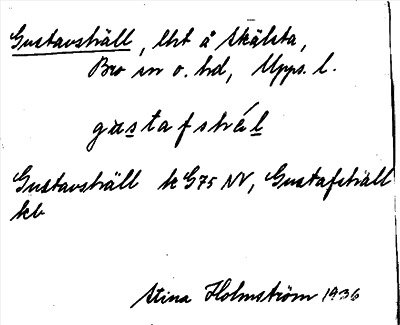 Gustavshäll, lht å Skälsta,
Bro sn o. hd, Upps. l.
gustafshäl
Gustavshäll k G75 NV, Gustafshäll
kb
Stina Holmström 1936